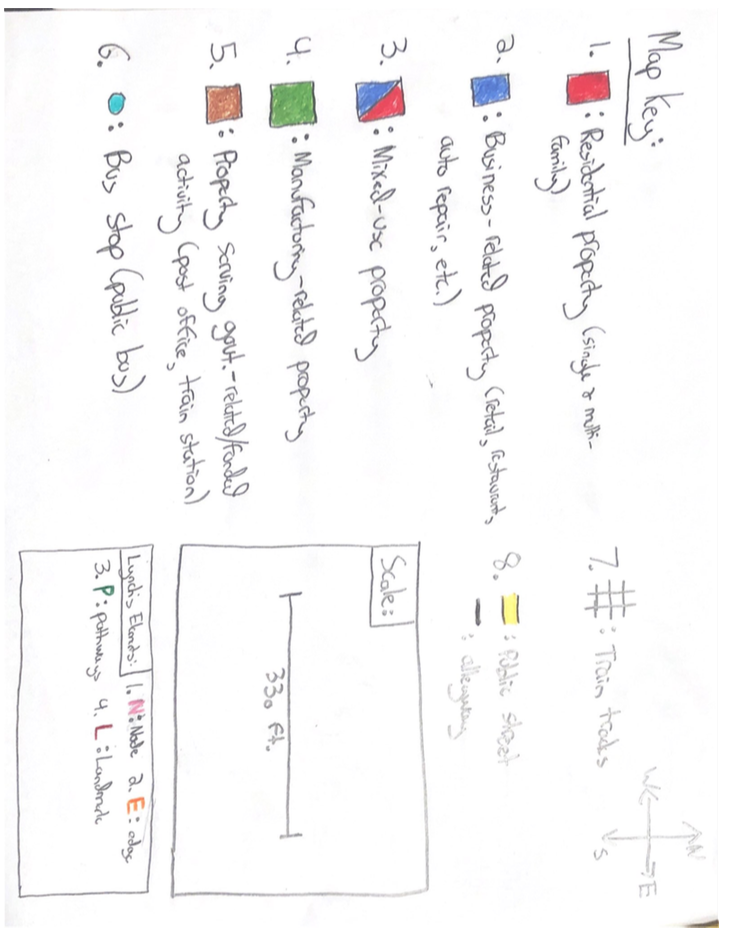 Map Key:
1. : Residential property (single & multi-
family)
2. : Business-related property (retail, restaurants,
auto repair, etc.)
3. : Mixed-use property
4. : Manufacturing-related property
5. : Property serving gout.-related/funded
activity (post office, train station)
6. : Bus stop (public bus)
7. : Train tracks
8. : Public street
: alleyway
N
W
E
S
Scale:
330 ft.
Lynch's Elements: 1. N: Node 2. E: edge
3. P: pathways 4. L: Landmark